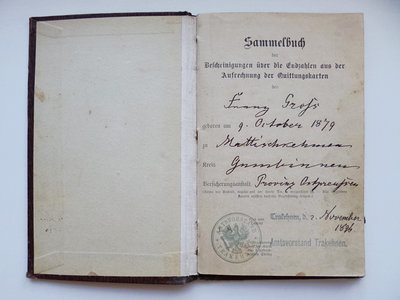 Sammelbuch
der
Bescheinigungen über die Endzahlen aus der
Aufrechnung der Quittungskarten
des
Franz Gross
geboren am 9. October 1879
zu Mattischkehmen
Kreis Gumbinnen
Versicherungsanstalt: Provinz Ostpreussen
Trakehnen, d. 2. November
1896
Amtsvorstand Trakehnen.